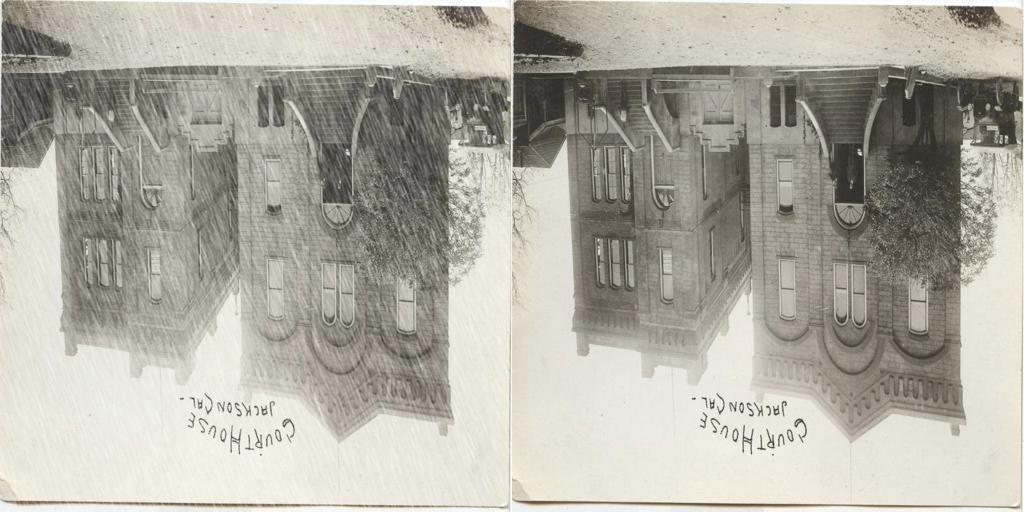 COURTHOUSE
JACKSON CAL-
COURTHOUSE
JACKSON CAL-